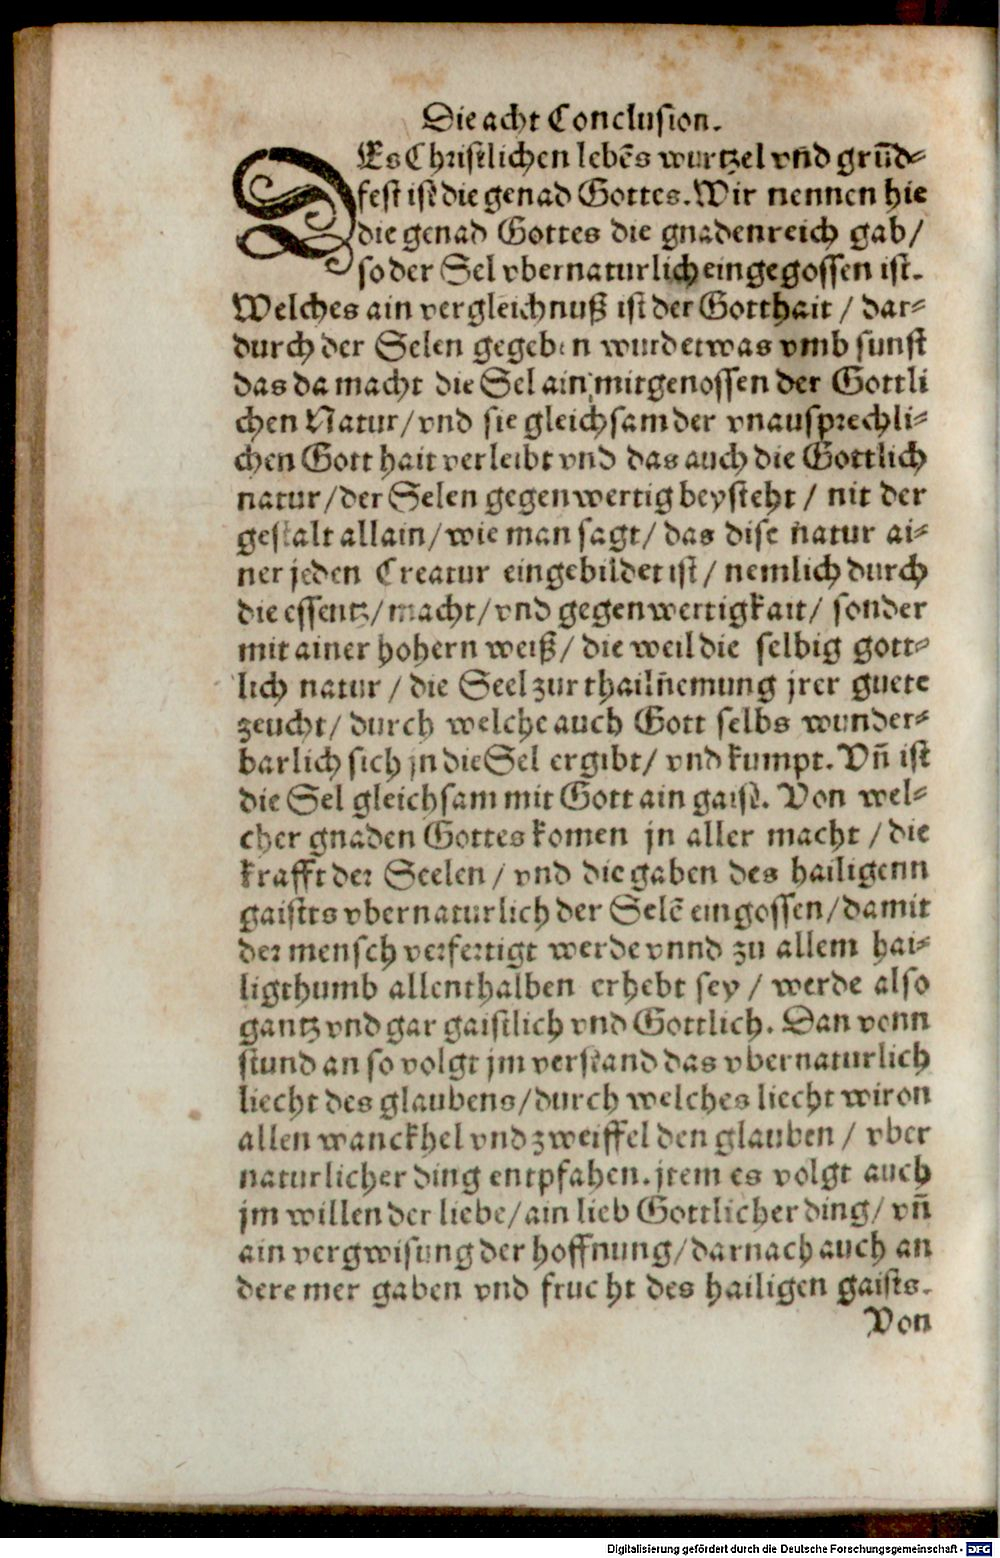 Die acht Conclusion.
DEs Christlichen lebēs wurtzel vn̄d grūd-
fest ist die genad Gottes. Wir nennen hie
die genad Gottes die gnadenreich gab/
so der Sel vbernaturlich eingegossen ist.
Welches ain vergleichnuß ist der Gotthait / dar-
durch der Selen gegeben wurd etwas vmb sunst
das da macht die Sel ain mitgenossen der Gottli
chen Natur/ vnd sie gleichsam der vnausprechli-
chen Gotthait verleibt vnd das auch die Gottlich
natur/ der Selen gegenwertig beysteht / nit der
gestalt allain/ wie man sagt/ das dise natur ai-
ner jeden Creatur eingebildet ist / nemlich durch
die essentz/ macht/ vnd gegenwertigkait/ sonder
mit ainer hohern weiß/ die weil die selbig gott-
lich natur / die Seel zur thailn̄emung jrer guete
zeucht/ durch welche auch Gott selbs wunder-
barlich sich jn die Sel ergibt/ vnd kumpt. Vn̄ ist
die Sel gleichsam mit Gott ain gaist. Von wel-
cher gnaden Gottes komen jn aller macht / die
krafft der Seelen / vnd die gaben des hailigenn
gaists vbernaturlich der Selē eingossen/ damit
der mensch verfertigt werde vnnd zu allem hai-
ligthumb allenthalben erhebt sey / werde also
gantz vnd gar gaistlich vnd Gottlich. Dan vonn
stund an so volgt jm verstand das vbernaturlich
liecht des glaubens/ durch welches liecht wir on
allen wanckhel vnd zweiffel den glauben / vber
naturlicher ding entpfahen. jtem es volgt auch
jm willen der liebe/ ain lieb Gottlicher ding/ vn̄
ain vergwisung der hoffnung/ darnach auch an
dere mer gaben vnd frucht des hailigen gaists.
Von
Digitalisierung gefördert durch die Deutsche Forschungsgemeinschaft - DFG